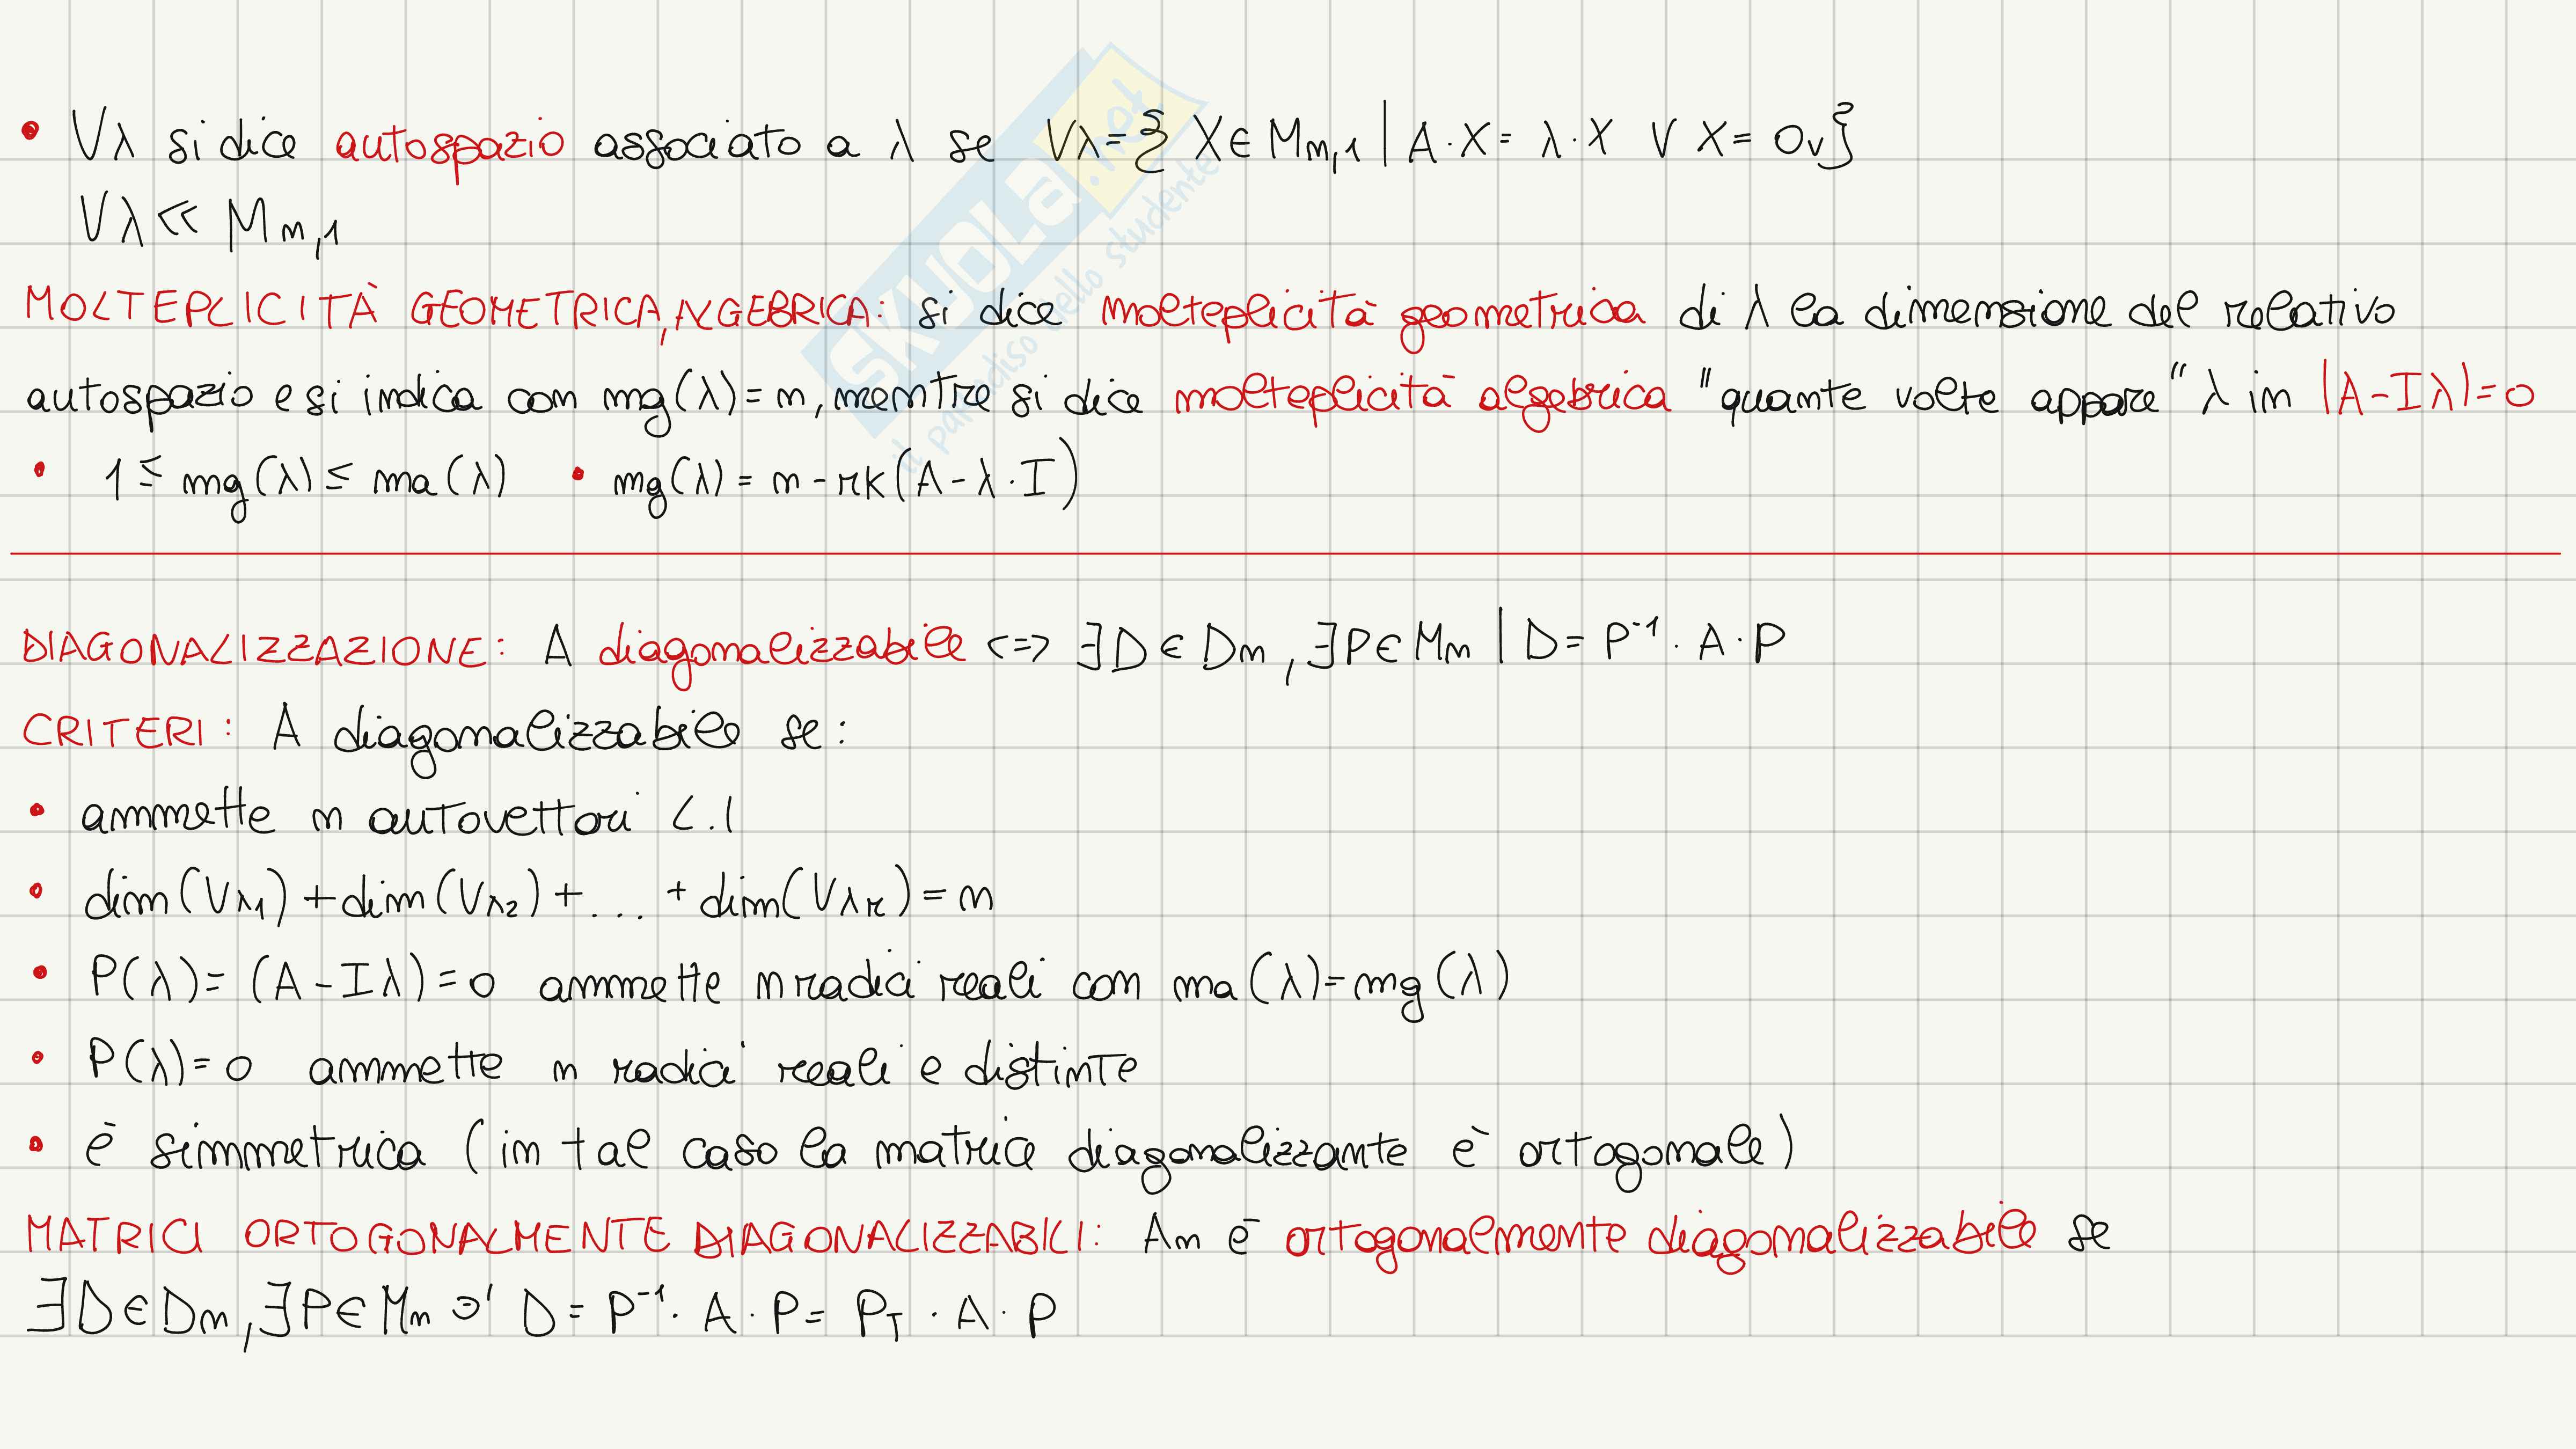 • Vλ si dice autospazio associato a λ se Vλ={ X∈ Mm,1 | A·X= λ·X ∨ X= Ov}
Vλ≪ Mm,1
MOLTEPLICITÀ GEOMETRICA, ALGEBRICA: si dice molteplicità geometrica di λ la dimensione del relativo
autospazio e si indica con mg(λ)=n, mentre si dice molteplicità algebrica "quante volte appare" λ in |A-Iλ|=0
• 1≤ mg(λ)≤ ma(λ) • mg(λ)= n-rk(A-λ·I)
DIAGONALIZZAZIONE: A diagonalizzabile <=> ∃D∈Dn, ∃P∈Mn | D= P⁻¹·A·P
CRITERI: A diagonalizzabile se:
• ammette n autovettori L.I
• dim(Vλ1)+dim(Vλ2)+...+dim(Vλr)=n
• P(λ)= (A-Iλ)=0 ammette n radici reali con ma(λ)=mg(λ)
• P(λ)=0 ammette n radici reali e distinte
• è simmetrica (in tal caso la matrice diagonalizzante è ortogonale)
MATRICI ORTOGONALMENTE DIAGONALIZZABILI: An è ortogonalmente diagonalizzabile se
∃D∈Dn, ∃P∈Mn ∋' D= P⁻¹·A·P= PT·A·P
SKUOLA.net
il paradiso dello studente